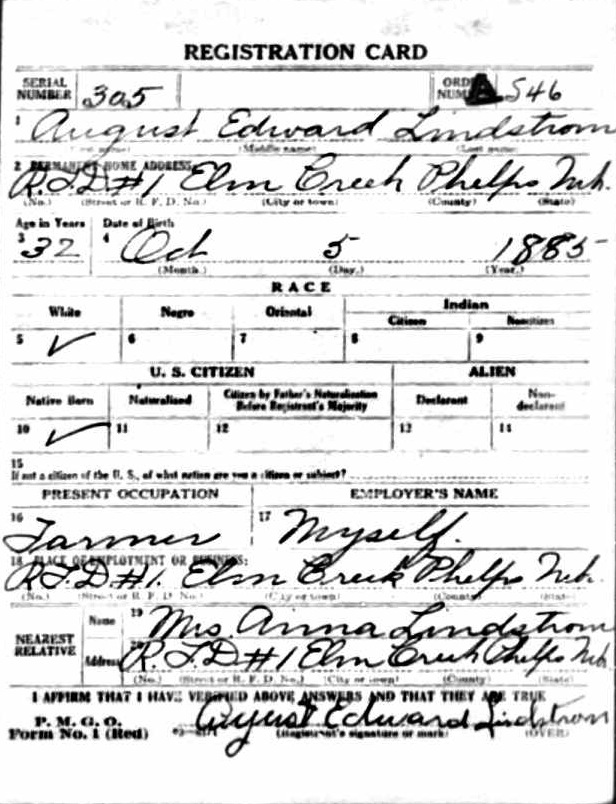 REGISTRATION CARD
SERIAL NUMBER 305 ORDER NUMBER A 546
1 August Edward Lindstrom
(First name) (Middle name) (Last name)
2 PERMANENT HOME ADDRESS:
R.F.D #1 Elm Creek Phelps Neb.
(No.) (Street or R. F. D. No.) (City or town) (County) (State)
Age in Years Date of Birth
3 32 4 Oct 5 1885
(Month.) (Day.) (Year.)
RACE
White Negro Oriental Indian
Citizen Noncitizen
5 ✓ 6 7 8 9
U. S. CITIZEN ALIEN
Native Born Naturalized Citizen by Father's Naturalization Before Registrant's Majority Declarant Non-declarant
10 ✓ 11 12 13 14
15
If not a citizen of the U. S., of what nation are you a citizen or subject?
PRESENT OCCUPATION EMPLOYER'S NAME
16 Farmer 17 Myself.
18 PLACE OF EMPLOYMENT OR BUSINESS:
R.F.D #1. Elm Creek Phelps Neb.
(No.) (Street or R. F. D. No.) (City or town) (County) (State)
NEAREST RELATIVE
Name 19 Mrs. Anna Lindstrom
Address R.F.D #1 Elm Creek Phelps Neb
(No.) (Street or R. F. D. No.) (City or town) (County) (State)
I AFFIRM THAT I HAVE VERIFIED ABOVE ANSWERS AND THAT THEY ARE TRUE
P. M. G. O.
Form No. 1 (Red) August Edward Lindstrom
(Registrant's signature or mark) (OVER)